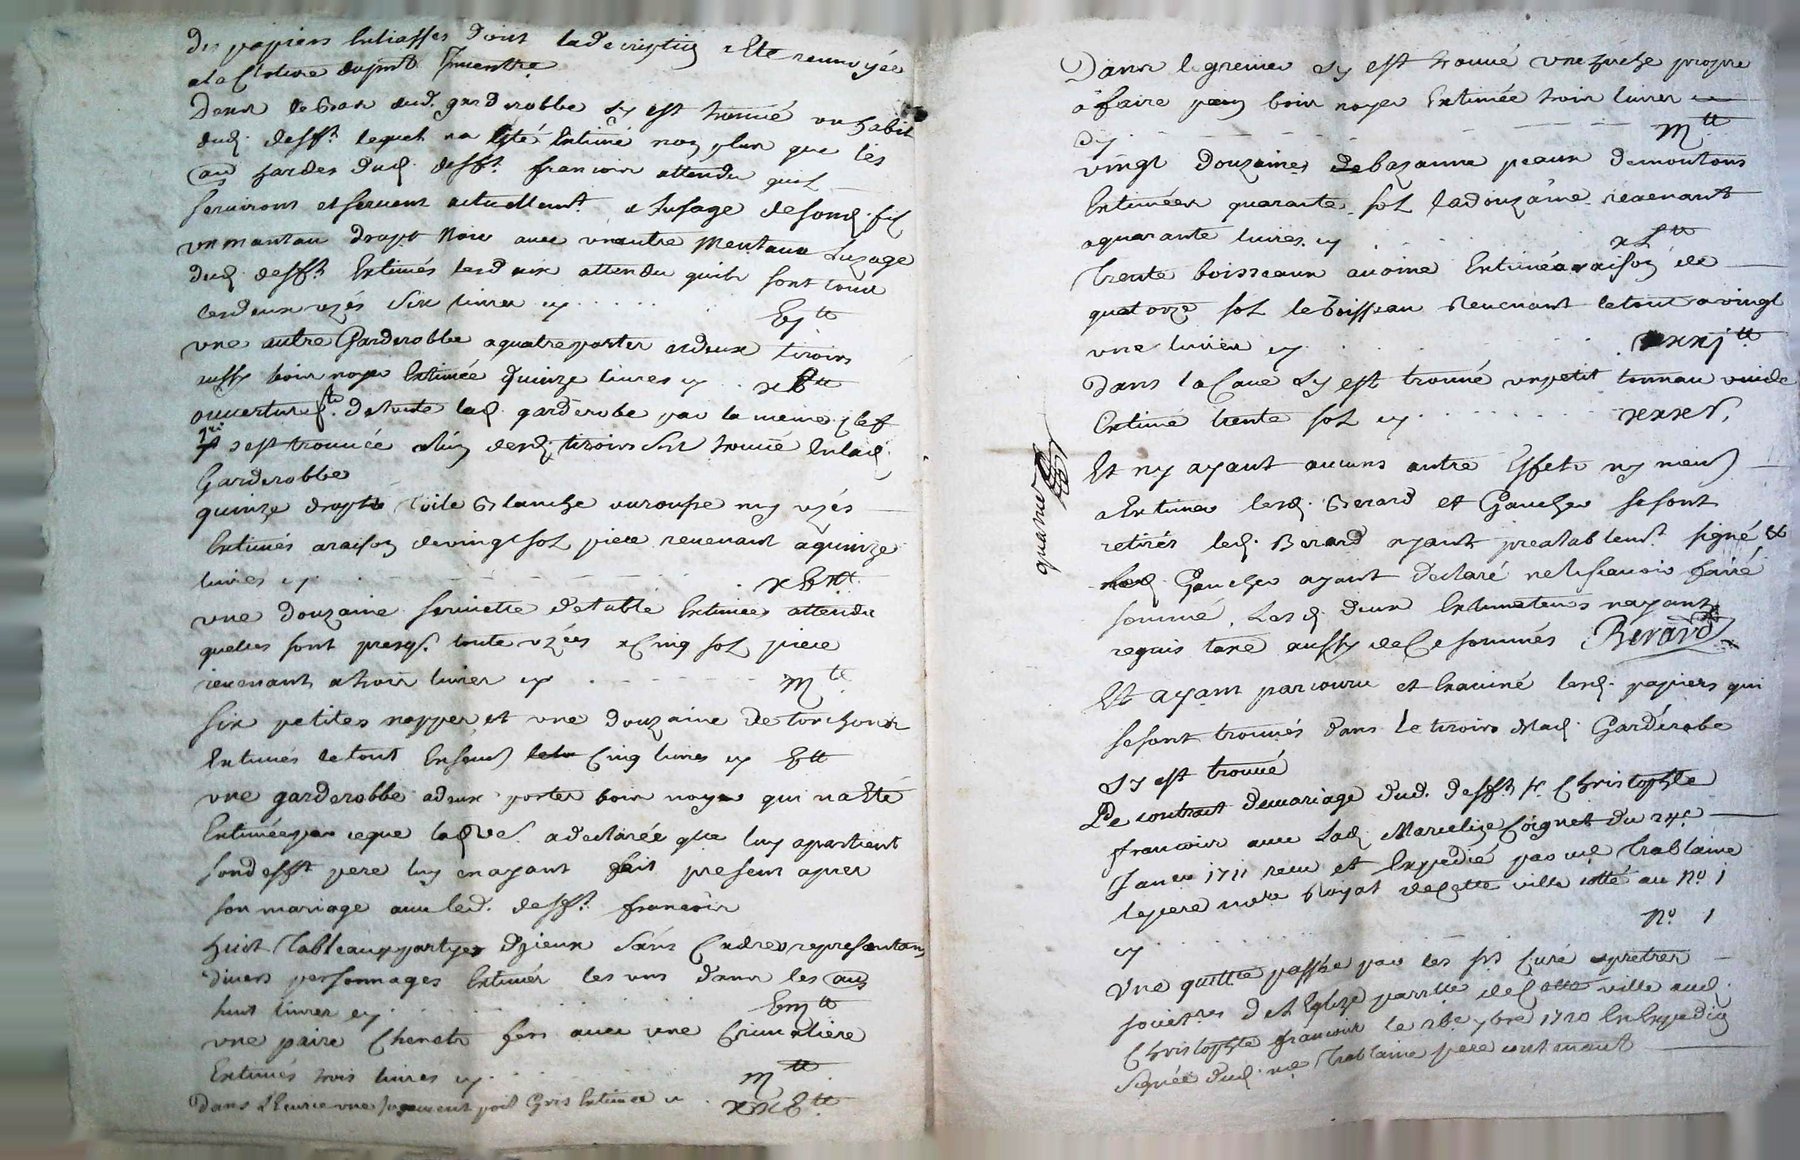 des papiers enliassés dont la description a Eté renvoyée
a la Cloture du pnt. Inventre
Dans le bas dud. garderobbe s'y est trouvé un habit
dud. defft. lequel na Eté Estimé non plus que les
au hardes dud. defft. françois attendu quil
serviront et servent actuellemt. a lusage de sond. fils
un manteau drapt Noir avec un autre Menteau Luzage
dud. defft. Estimés lesd six attendu quils sont tous
lesdeux uzés six livres cy . . . . . vj ₶
une autre Garderobbe a quatre portes et deux tiroirs
aussy bois noyer Estimée quinze livres cy . . xv ₶
ouverture fte. de toute lad. garderobe par la meme clef
qui s'est trouvée a l'un desd. tiroirs s'est trouvé En lad.
Garderobbe
quinze drapts toile blanche ou rousse my uzés
Estimés a raison de vingt sol piece revenant a quinze
livres cy . . . . . xv ₶
une douzaine serviette de table Estimées attendu
quelles sont presq. toute uzées a Cinq sol piece
revenant a trois livres cy . . . . . iij ₶
six petites nappes et une douzaine de torchons
Estimés le tout Ensembl Cinq livres cy v ₶
une garderobbe a deux portes bois noyer qui na Eté
Estimée par ce que lad ve. a declarée que luy apartient
son defft pere luy en ayant fait present apres
son mariage avec led. defft. françois
huit Tableaux partye vieux sans Cadres representans
divers personnages Estimés les uns dans les au
huit livres cy . . . . . viij ₶
une paire Chenets fer avec une Crimaliere
Estimés trois livres cy . . . . . iij ₶
Dans L'Ecurie une Jument poil Gris Estimée cy . xxv ₶
Dans le grenier s'y est trouvé une huche propre
a faire pain bois noyer Estimée trois livres
cy . . . . . iij ₶
vingt douzaines de bazanne peaux de moutons
Estimées quarante sol la douzaine revenant
a quarante livres cy . . . . . xL ₶
Trente boisseaux avoine Estimée a raison de
quatorze sol le boisseau Revenant le tout a vingt
une livres cy . . . . . xxj ₶
Dans la Cave s'y est trouvé un petit tonneau vuide
Estimé trente sol cy . . . . . xxx s.
Et ny ayant aucuns autre Effets ny meubl
a Estimer lesd. Berard et Gaucher se sont
retirés led. Berard ayant prealablemt. signé et
led. Gaucher ayant declaré ne le sçavoir faire
sommé, Lesd. deux Estimateurs nayant
requis taxe aussy de Ce sommés Berard
quand
Et ayant parcouru et Examiné lesd. papiers qui
se sont trouvés dans le tiroirs de lad. Garderobe
s'y est trouvé
Le contract de mariage dud. defft. Sr. Christophle
françois avec Lad. Marcelize Coignet du 24e
Janer 1711 receu et Expedié par me Trablaine
le pere nore Royal de Cette ville cotté au No. 1
cy . . . . . No. 1
Une quittce passée par les srs Curé et pretres
societres de L'Eglize parrlle de Cette ville aud.
Christophle françois le 28e 7bre 1720 En Expedion
signée dud. me Trablaine pere contenant